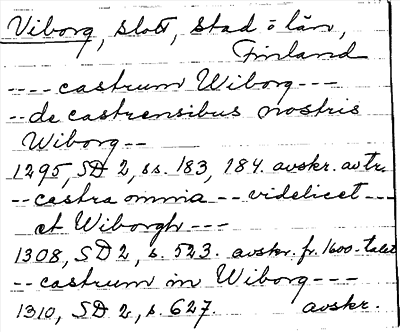 Viborg, slott, stad o län,
Finland
---- castrum Wiborg ---
-- de castrensibus nostris
Wiborg --
1295, SD 2, ss. 183, 184. avskr. av tr.
-- castra omnia -- videlicet ---
et Wiborgh ---
1308, SD 2, s. 523. avskr. fr. 1600-talet
-- castrum in Wiborg ---
1310, SD 2, s. 627. avskr.